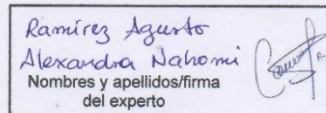 Ramírez Agusto
Alexandra Nahomi
Nombres y apellidos/firma
del experto